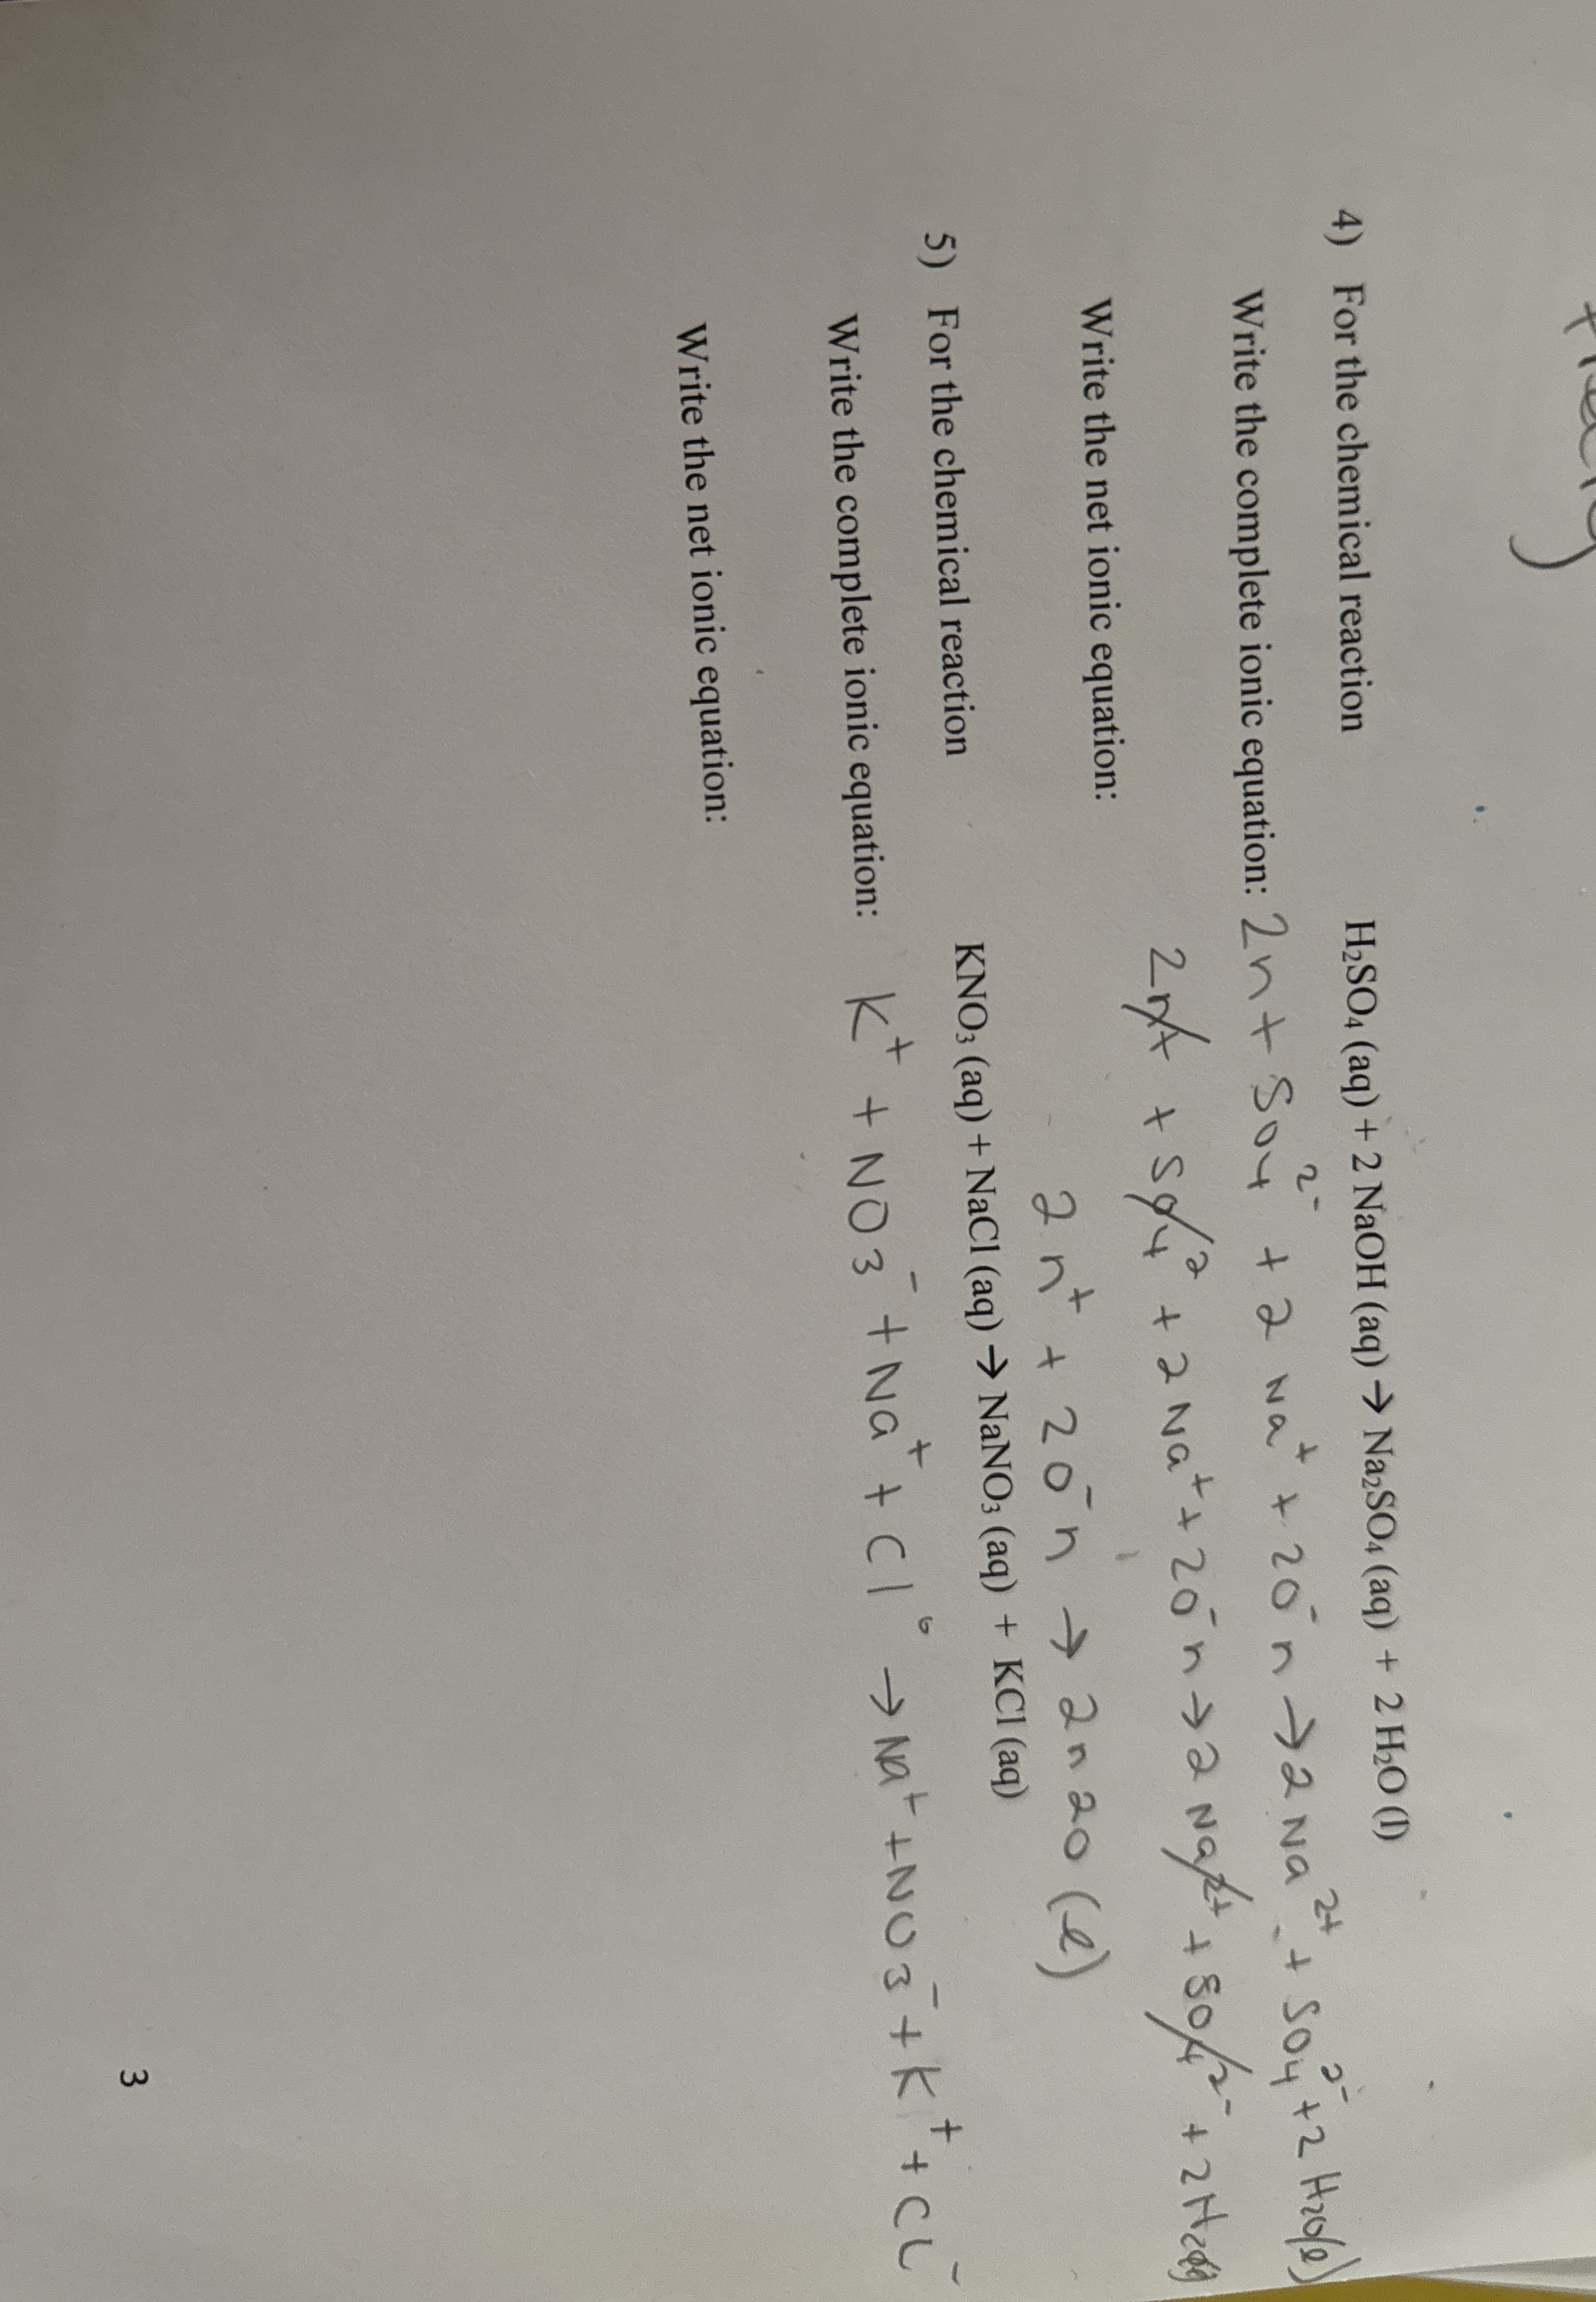 4) For the chemical reaction H₂SO₄ (aq) + 2 NaOH (aq) → Na₂SO₄ (aq) + 2 H₂O (l)
Write the complete ionic equation: 2n+ SO4²⁻ + 2 Na⁺ + 2O⁻n → 2 Na²⁺ + SO4²⁻ + 2 H2O(l)
2n+ + SO4² + 2 Na⁺ + 2O⁻n → 2 Na²⁺ + SO4²⁻ + 2 H2O(l)
Write the net ionic equation:
2n⁺ + 2O⁻n → 2n2O (l)
5) For the chemical reaction KNO₃ (aq) + NaCl (aq) → NaNO₃ (aq) + KCl (aq)
Write the complete ionic equation: K⁺ + NO3⁻ + Na⁺ + Cl → Na⁺ + NO3⁻ + K⁺ + CL⁻
Write the net ionic equation:
3